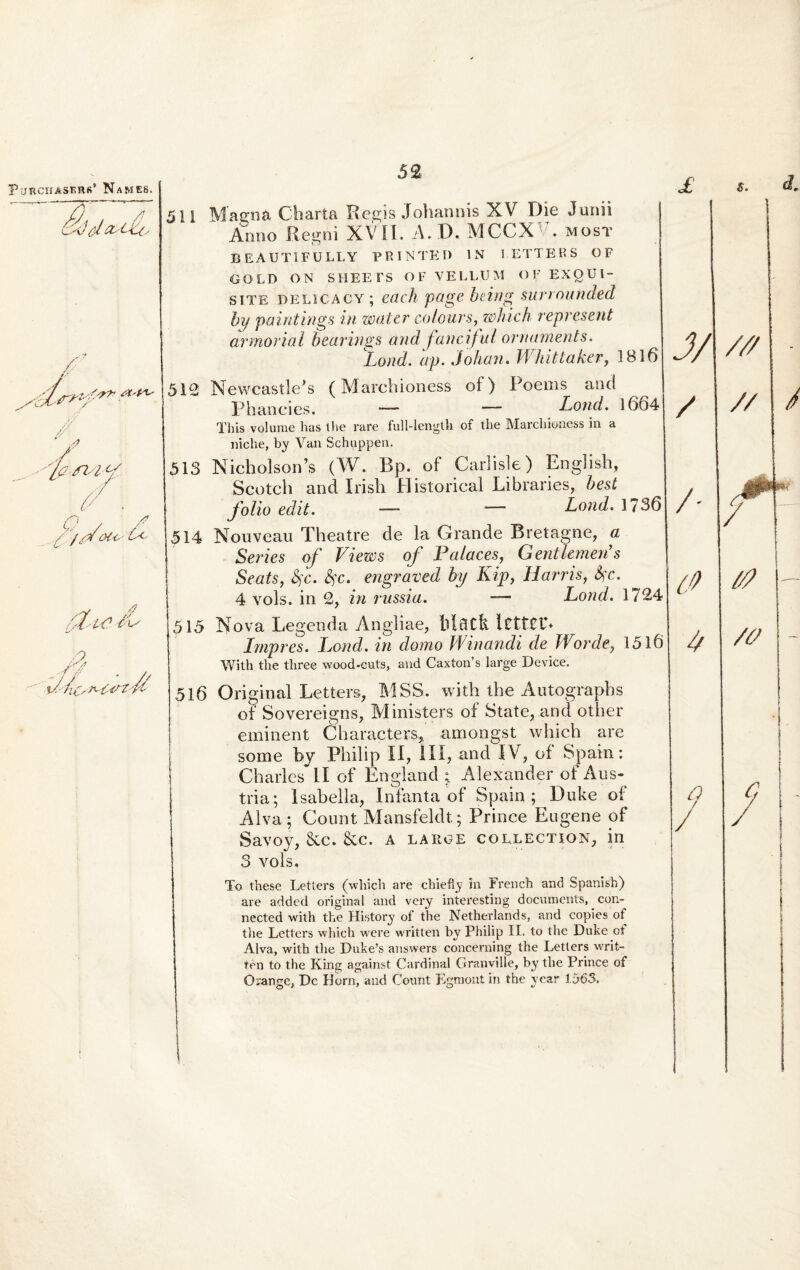 52
PURCHASERS' NAMES.
£ s. d.
511 Magna Charta Regis Johannis XV Die Junii
Anno Regni XVII. A. D. MCCXV. MOST
BEAUTIFULLY PRINTED IN LETTERS OF
GOLD ON SHEETS OF VELLUM OF EXQUI-
SITE DELICACY; each page being surrounded
by paintings in water colours, which represent
armorial bearings and fanciful ornaments.
Lond. ap. Johan. Whittaker, 1816
512 Newcastle's (Marchioness of) Poems and
Phancies. — — Lond. 1664
This volume has the rare full-length of the Marchioness in a
niche, by Van Schuppen.
513 Nicholson's (W. Bp. of Carlisle) English,
Scotch and Irish Historical Libraries, best
folio edit. — — Lond. 1736
514 Nouveau Theatre de la Grande Bretagne, a
Series of Views of Palaces, Gentlemen's
Seats, &c. &c. engraved by Kip, Harris, &c.
4 vols. in 2, in russia. — Lond. 1724
515 Nova Legenda Angliae, black letter.
Impres. Lond. in domo Winandi de Worde, 1516
4 10
With the three wood-cuts, and Caxton's large Device.
516 Original Letters, MSS. with the Autographs
of Sovereigns, Ministers of State, and other
eminent Characters, amongst which are
some by Philip II, III, and IV, of Spain:
Charles II of England; Alexander of Aus-
tria; Isabella, Infanta of Spain; Duke of
Alva; Count Mansfeldt; Prince Eugene of
Savoy, &c. &c. A LARGE COLLECTION, in
3 vols.
9 9
To these Letters (which are chiefly in French and Spanish)
are added original and very interesting documents, con-
nected with the History of the Netherlands, and copies of
the Letters which were written by Philip II. to the Duke of
Alva, with the Duke's answers concerning the Letters writ-
ten to the King against Cardinal Granville, by the Prince of
Orange, De Horn, and Count Egmont in the year 1563.